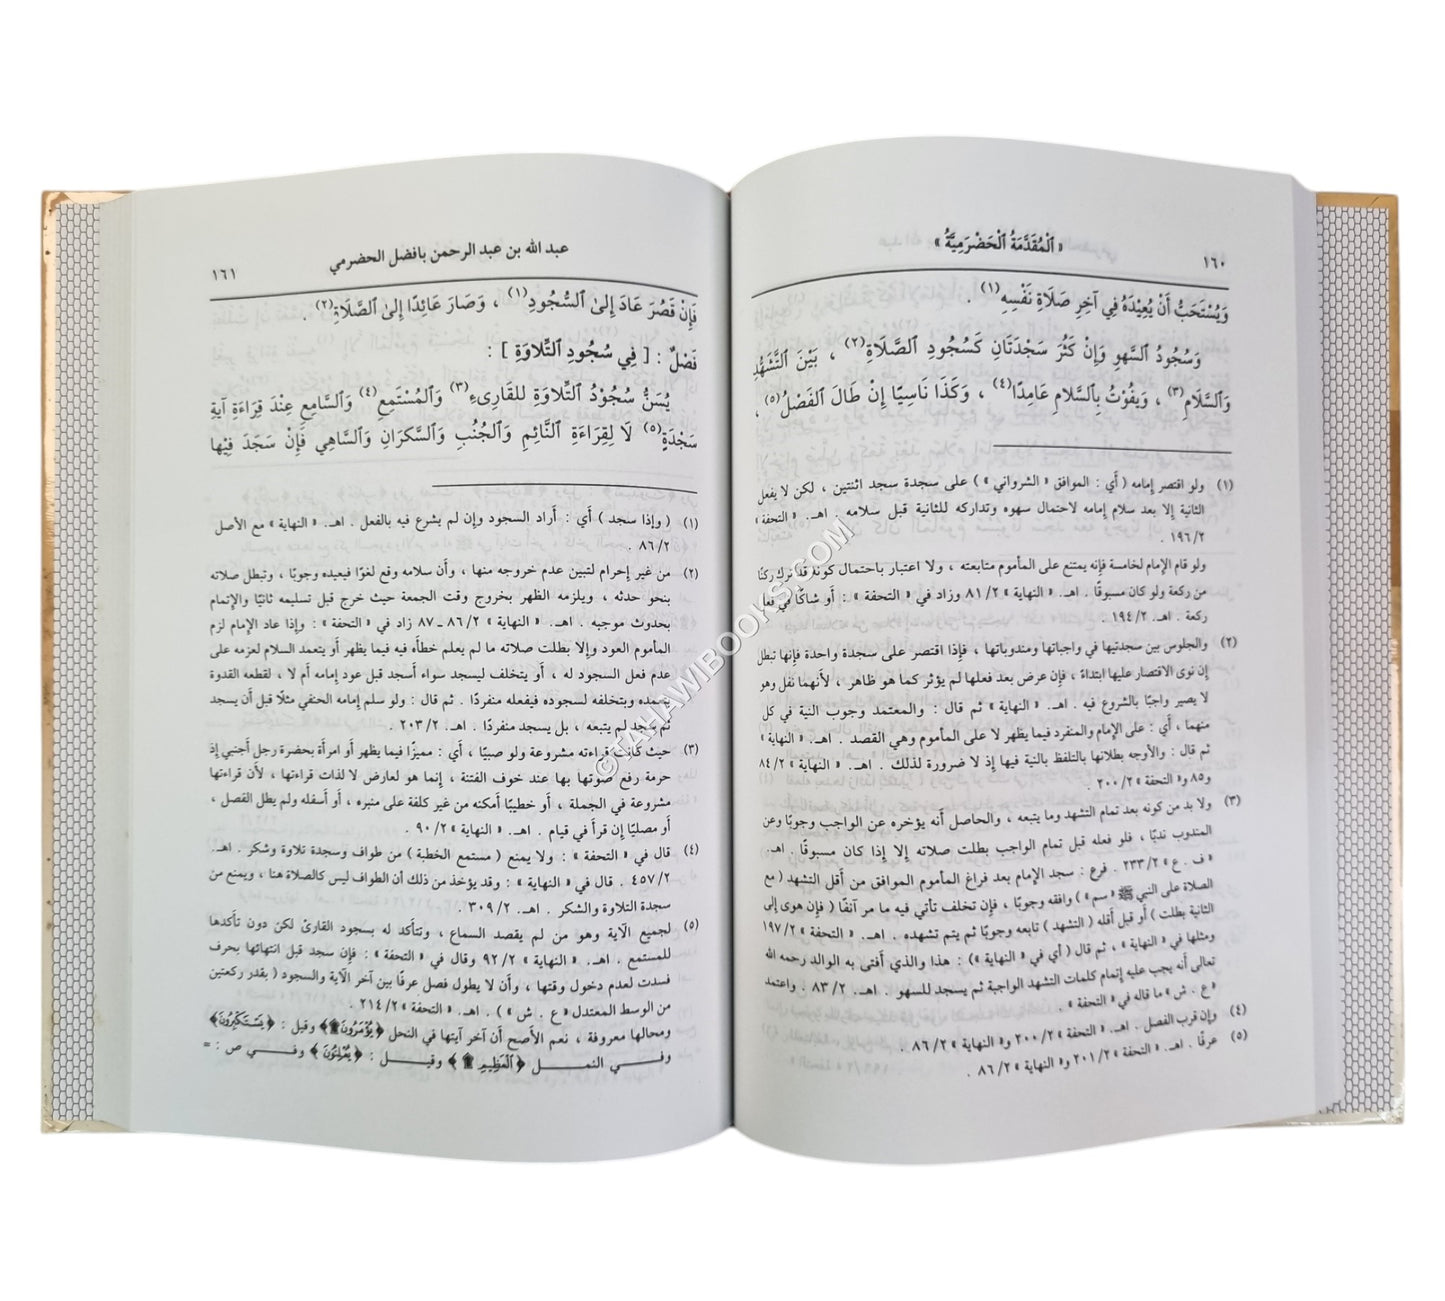 ١٦٠
« ٱلْمُقَدَّمَةُ ٱلْحَضْرَمِيَّةُ »
وَيُسْتَحَبُّ أَنْ يُعِيْدَهُ فِي آخِرِ صَلَاةِ نَفْسِهِ(١) .
وَسُجُودُ ٱلسَّهوِ وَإِنْ كَثُرَ سَجْدَتَانِ كَسُجُودِ ٱلصَّلَاةِ(٢) ، بَيْنَ ٱلتَّشَهُّدِ
وَٱلسَّلَامِ(٣) ، وَيَفُوْتُ بِٱلسَّلَامِ عَامِدًا(٤) ، وَكَذَا نَاسِيًا إِنْ طَالَ ٱلفَصْلُ(٥) ،
(١) ولو اقتصر إمامه ( أي : الموافق « الشرواني » ) على سجدة سجد اثنتين ، لكن لا يفعل
الثانية إلا بعد سلام إمامه لاحتمال سهوه وتداركه للثانية قبل سلامه . اهـ. « التحفة »
١٩٦/٢ .
ولو قام الإمام لخامسة فإنه يمتنع على المأموم متابعته ، ولا اعتبار باحتمال كونه قد ترك ركنًا
من ركعة ولو كان مسبوقًا . اهـ. « النهاية » ٨١/٢ وزاد في « التحفة » : أو شاكًا في فعل
ركعة . اهـ. ١٩٤/٢ .
(٢) والجلوس بين سجدتيها في واجباتها ومندوباتها ، فإذا اقتصر على سجدة واحدة فإنها تبطل
إن نوى الاقتصار عليها ابتداءً ، فإن عرض بعد فعلها لم يؤثر كما هو ظاهر ، لأنهما نفل وهو
لا يصير واجبًا بالشروع فيه . اهـ. « النهاية » ثم قال : والمعتمد وجوب النية في كل
منهما ، أي : على الإمام والمنفرد فيما يظهر لا على المأموم وهي القصد . اهـ. « النهاية »
ثم قال : والأوجه بطلانها بالتلفظ بالنية فيها إذ لا ضرورة لذلك . اهـ. « النهاية » ٨٤/٢
و٨٥ و« التحفة » ٢٠٠/٢ .
(٣) ولا بد من كونه بعد تمام التشهد وما يتبعه ، والحاصل أنه يؤخره عن الواجب وجوبًا وعن
المندوب ندبًا ، فلو فعله قبل تمام الواجب بطلت صلاته إلا إذا كان مسبوقًا . اهـ.
« ف . ع » ٢٣٣/٢ . فرع : سجد الإمام بعد فراغ المأموم الموافق من أقل التشهد ( مع
الصلاة على النبي ﷺ « سم » ) وافقه وجوبًا ، فإن تخلف تأتي فيه ما مر آنفًا ( فإن هوى إلى
الثانية بطلت ) أو قبل أقله ( التشهد ) تابعه وجوبًا ثم يتم تشهده . اهـ. « التحفة » ١٩٧/٢
ومثلها في « النهاية » ، ثم قال ( أي في « النهاية » ) : هذا والذي أفتى به الوالد رحمه الله
تعالى أنه يجب عليه إتمام كلمات التشهد الواجبة ثم يسجد للسهو . اهـ. ٨٣/٢ . واعتمد
« ع . ش » ما قاله في « التحفة » .
(٤) وإن قرب الفصل . اهـ. « التحفة » ٢٠٠/٢ و« النهاية » ٨٦/٢ .
(٥) عرفًا . اهـ. « التحفة » ٢٠١/٢ و« النهاية » ٨٦/٢ .
عبد الله بن عبد الرحمن بافضل الحضرمي
١٦١
فَإِنْ قَصُرَ عَادَ إِلىٰ ٱلسُّجُودِ(١) ، وَصَارَ عَائِدًا إِلىٰ ٱلصَّلَاةِ(٢) .
فَصْلٌ : [ فِي سُجُودِ ٱلتِّلاوَةِ ] :
يُسَنُّ سُجُوْدُ ٱلتِّلاوَةِ للقَارِىءِ(٣) وَٱلمُسْتَمِعِ(٤) وَٱلسَّامِعِ عِنْدَ قِرَاءَةِ آيَةِ
سَجْدَةٍ(٥) لَا لِقِرَاءَةِ ٱلنَّائِمِ وَٱلجُنُبِ وَٱلسَّكرَانِ وَٱلسَّاهِي فَإِنْ سَجَدَ فِيْهَا
(١) ( وإذا سجد ) أي : أراد السجود وإن لم يشرع فيه بالفعل . اهـ. « النهاية » مع الأصل
٨٦/٢ .
(٢) من غير إحرام لتبين عدم خروجه منها ، وأن سلامه وقع لغوًا فيعيده وجوبًا ، وتبطل صلاته
بنحو حدثه ، ويلزمه الظهر بخروج وقت الجمعة حيث خرج قبل تسليمه ثانيًا والإتمام
بحدوث موجبه . اهـ. « النهاية » ٨٦/٢ـ ٨٧ زاد في « التحفة » : وإذا عاد الإمام لزم
المأموم العود وإلا بطلت صلاته ما لم يعلم خطأه فيه فيما يظهر أو يتعمد السلام لعزمه على
عدم فعل السجود له ، أو يتخلف ليسجد سواء أسجد قبل عود إمامه أم لا ، لقطعه القدوة
بعمده وبتخلفه لسجوده فيفعله منفردًا . ثم قال : ولو سلم إمامه الحنفي مثلًا قبل أن يسجد
ثم سجد لم يتبعه ، بل يسجد منفردًا . اهـ. ٢٠٣/٢ .
(٣) حيث كانت قراءته مشروعة ولو صبيًا ، أي : مميزًا فيما يظهر أو امرأة بحضرة رجل أجنبي إذ
حرمة رفع صوتها بها عند خوف الفتنة ، إنما هو لعارض لا لذات قراءتها ، لأن قراءتها
مشروعة في الجملة ، أو خطيبًا أمكنه من غير كلفة على منبره ، أو أسفله ولم يطل الفصل ،
أو مصليًا إن قرأ في قيام . اهـ. « النهاية » ٩٠/٢ .
(٤) قال في « التحفة » : ولا يمنع ( مستمع الخطبة ) من طواف وسجدة تلاوة وشكر . اهـ.
٤٥٧/٢ . قال في « النهاية » : وقد يؤخذ من ذلك أن الطواف ليس كالصلاة هنا ، ويمنع من
سجدة التلاوة والشكر . اهـ. ٣٠٩/٢ .
(٥) لجميع الآية وهو من لم يقصد السماع ، وتتأكد له بسجود القارئ لكن دون تأكدها
للمستمع . اهـ. « النهاية » ٩٢/٢ وقال في « التحفة » : فإن سجد قبل انتهائها بحرف
فسدت لعدم دخول وقتها ، وأن لا يطول فصل عرفًا بين آخر الآية والسجود ( بقدر ركعتين
من الوسط المعتدل « ع . ش » ) . اهـ. « التحفة » ٢١٤/٢ .
ومحالها معروفة ، نعم الأصح أن آخر آيتها في النحل ﴿يُؤْمَرُونَ۩﴾ وقيل : ﴿يَسْتَكْبِرُونَ﴾
وفـي النمل ﴿ٱلْعَظِيمِ ۩﴾ وقيـل : ﴿يُعْلِنُونَ﴾ وفـي ص : =
©TAHAWIBOOKS.COM